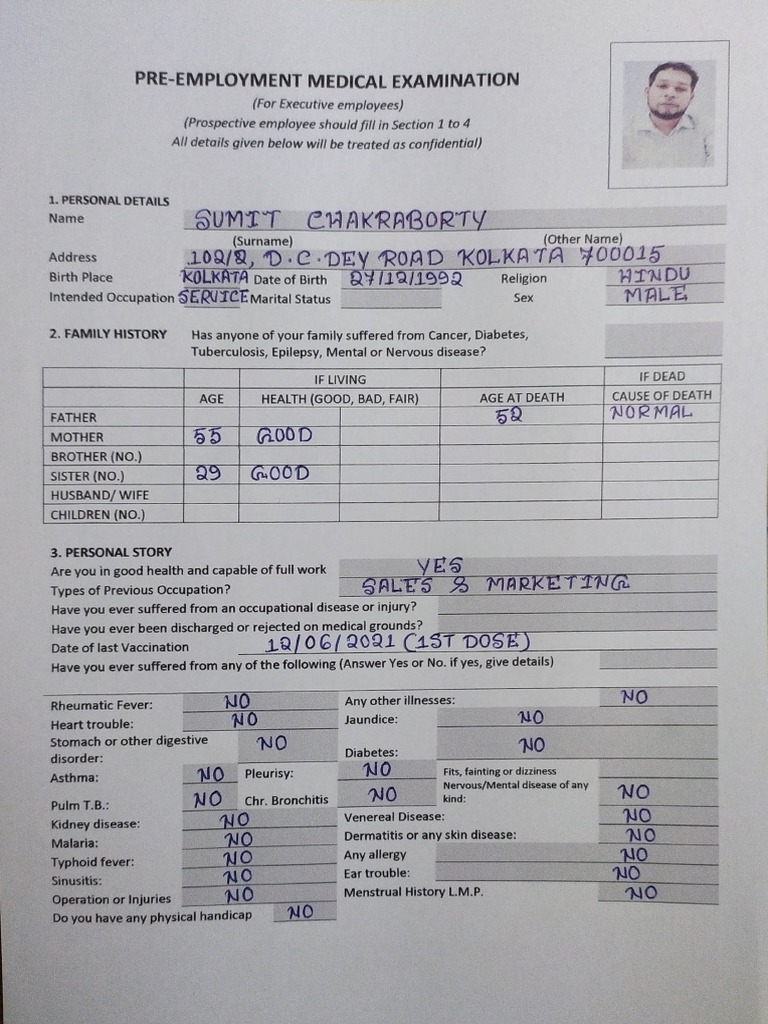 PRE-EMPLOYMENT MEDICAL EXAMINATION
(For Executive employees)
(Prospective employee should fill in Section 1 to 4
All details given below will be treated as confidential)
1. PERSONAL DETAILS
Name SUMIT CHAKRABORTY
(Surname) (Other Name)
Address 102/2, D.C.DEY ROAD KOLKATA 700015
Birth Place KOLKATA Date of Birth 27/12/1992 Religion HINDU
Intended Occupation SERVICE Marital Status Sex MALE
2. FAMILY HISTORY Has anyone of your family suffered from Cancer, Diabetes,
Tuberculosis, Epilepsy, Mental or Nervous disease?
IF LIVING IF DEAD
AGE HEALTH (GOOD, BAD, FAIR) AGE AT DEATH CAUSE OF DEATH
FATHER 52 NORMAL
MOTHER 55 GOOD
BROTHER (NO.)
SISTER (NO.) 29 GOOD
HUSBAND/ WIFE
CHILDREN (NO.)
3. PERSONAL STORY
Are you in good health and capable of full work YES
Types of Previous Occupation? SALES & MARKETING
Have you ever suffered from an occupational disease or injury?
Have you ever been discharged or rejected on medical grounds?
Date of last Vaccination 12/06/2021 (1ST DOSE)
Have you ever suffered from any of the following (Answer Yes or No. if yes, give details)
Rheumatic Fever: NO Any other illnesses: NO
Heart trouble: NO Jaundice: NO
Stomach or other digestive disorder: NO Diabetes: NO
Asthma: NO Pleurisy: NO Fits, fainting or dizziness
Pulm T.B.: NO Chr. Bronchitis NO Nervous/Mental disease of any kind: NO
Kidney disease: NO Venereal Disease: NO
Malaria: NO Dermatitis or any skin disease: NO
Typhoid fever: NO Any allergy NO
Sinusitis: NO Ear trouble: NO
Operation or Injuries NO Menstrual History L.M.P. NO
Do you have any physical handicap NO